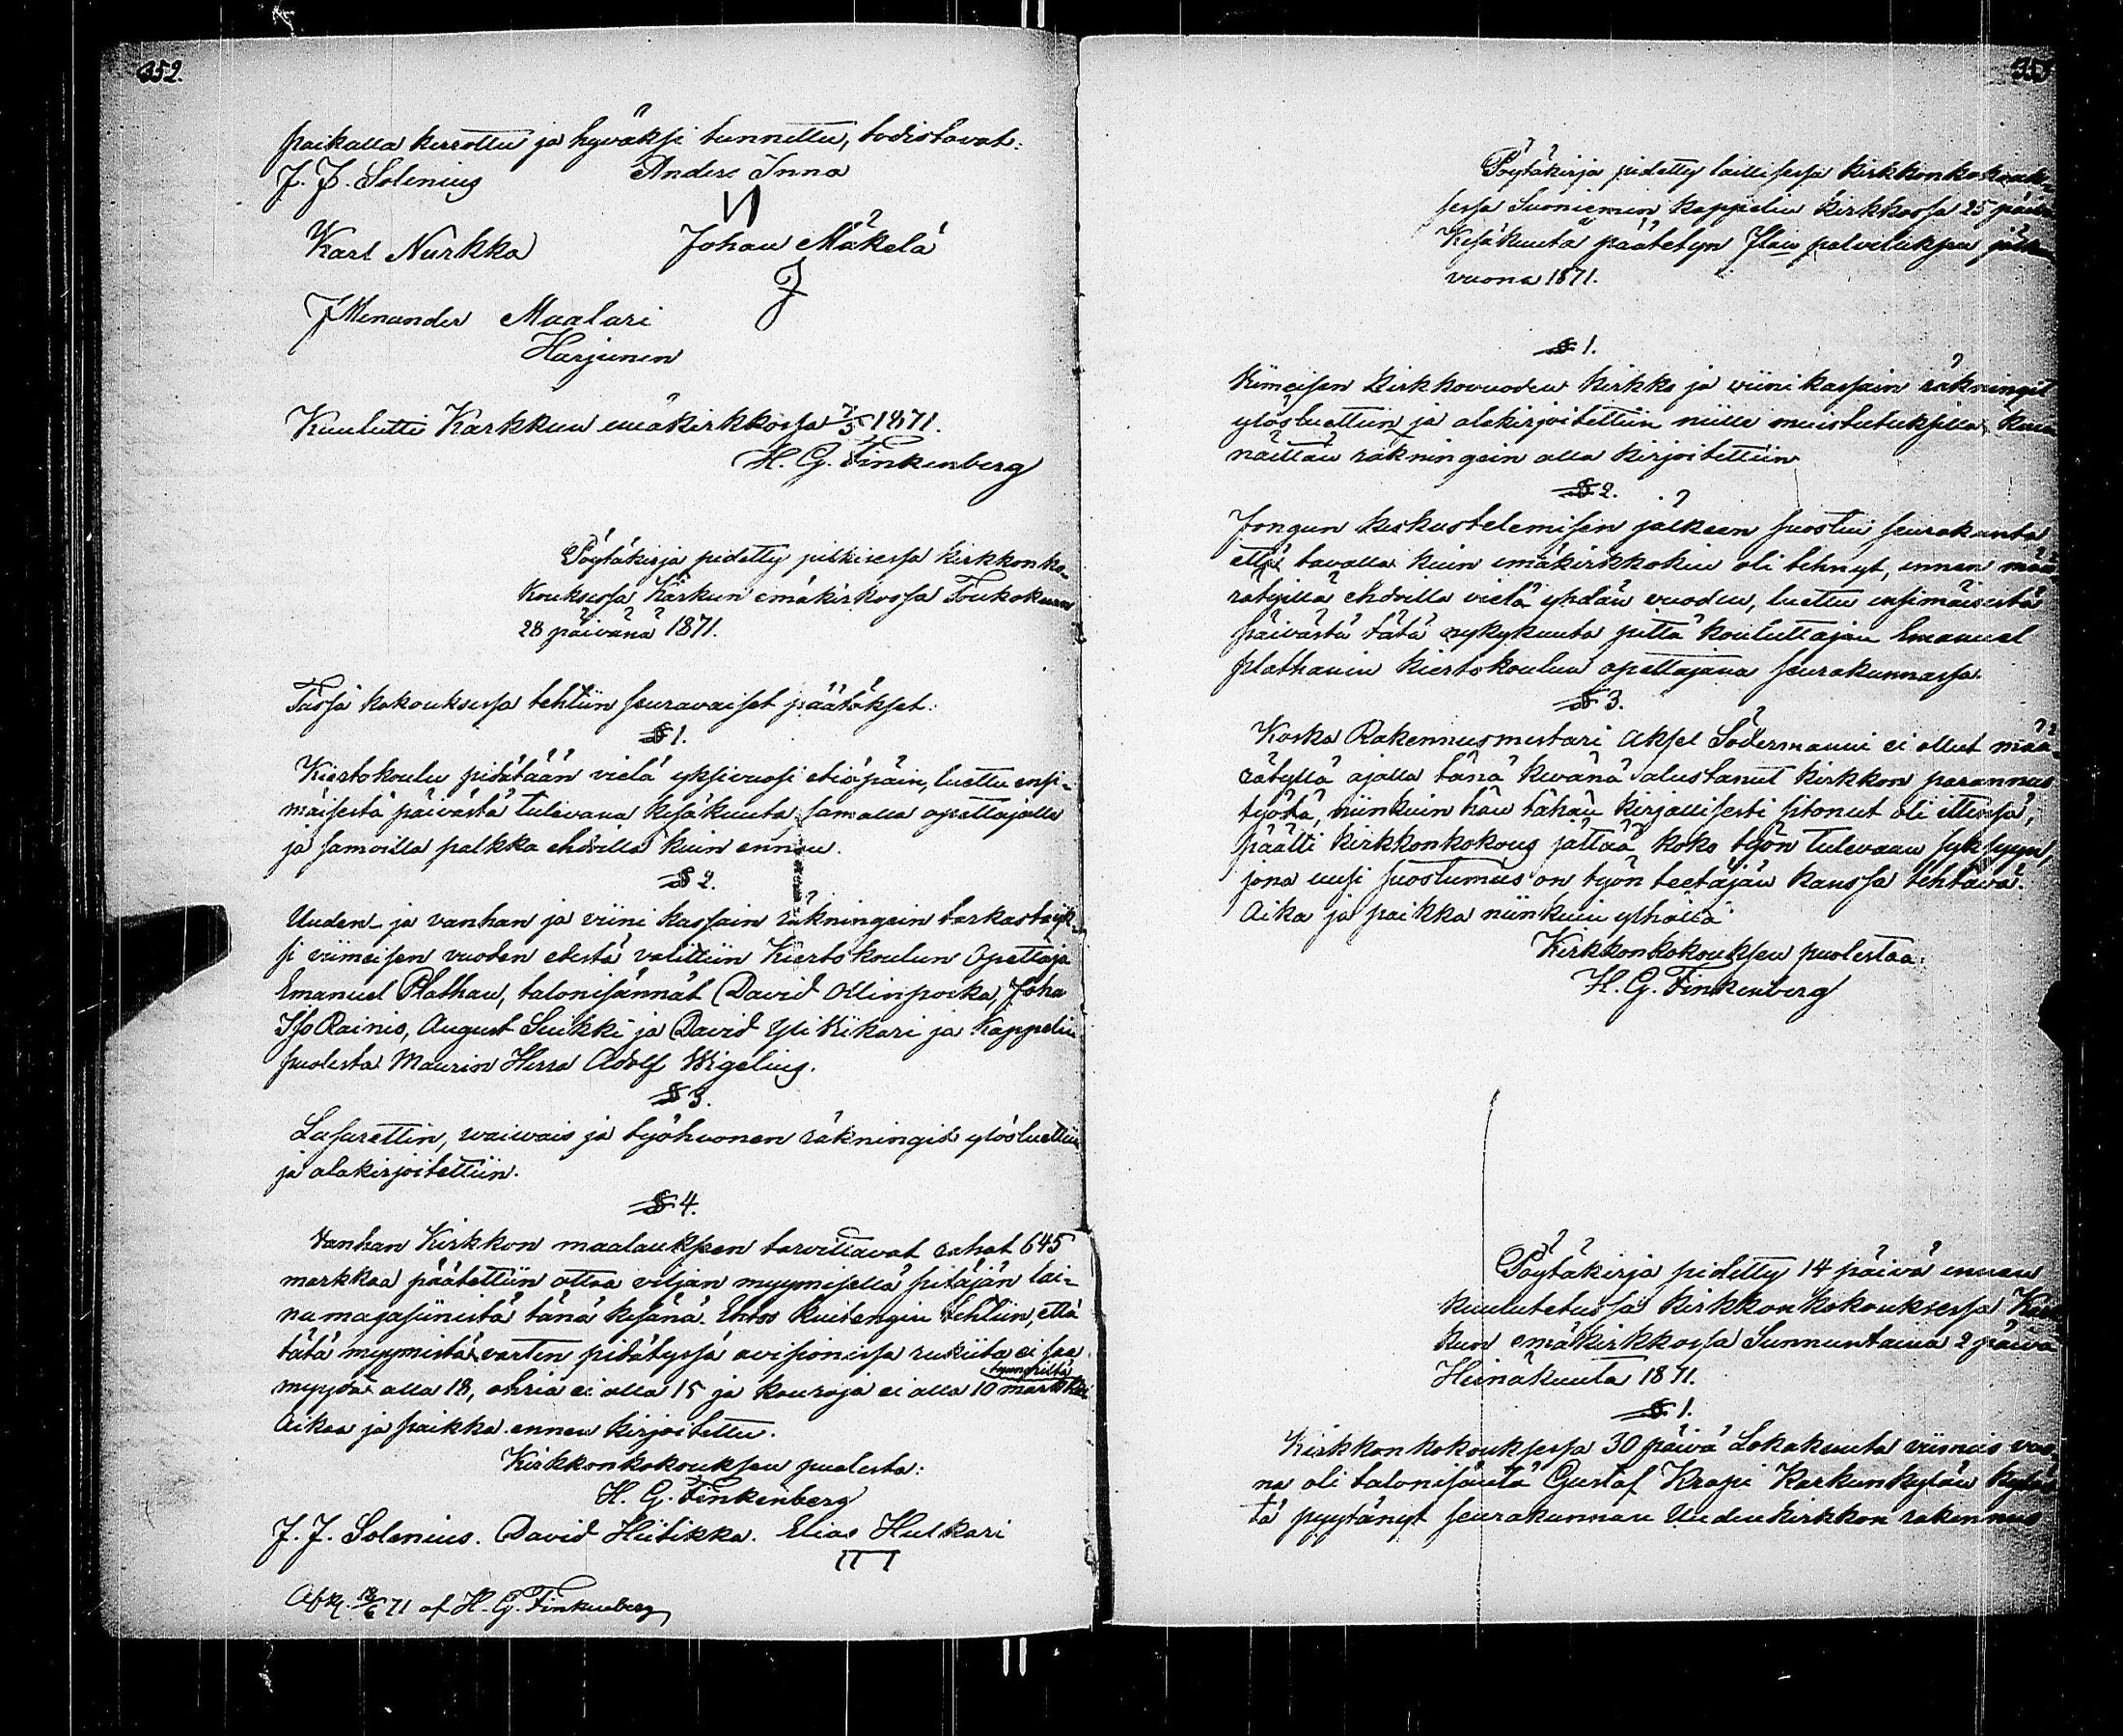 352.
paikalla kerrottu ja hyväksi tunnettu, todistavat:
J. J. Solenius Anders Inna
Karl Nurkka Johan Mäkelä
J Menander Maalari
Harjunen
Kuulutti Karkkun emäkirkkossa 7/5 1871.
H. G. Finkenberg
Pöytäkirja pidetty julkisessa kirkkonko-
kouksessa Karkun emäkirkossa Toukokuun
28 päivänä 1871.
Tässä kokouksessa tehtiin seuravaiset päätökset:
§ 1.
Kiertokoulu pidätään vielä yksivuosi etiäpäin, luettu ensi-
mäisestä päivästä tulevana kesäkuuta samalla opettajalla
ja samoilla palkka ehdoilla kuin ennen.
§ 2.
Uuden- ja vanhan ja viini kassain räkningein tarkastajik-
si viimeisen vuoden edestä valittiin Kiertokoulun Opettaja
Emanuel Plathan, talonisännät David Ollinpoika, Joha
Iso Rainio, August Suikki ja David Yli Kikari ja Kappelin
puolesta Maurin Herra Adolf Wigelius.
§ 3.
Lasarettin, waiwais ja työhuonen räkningit ylösluettiin
ja alakirjoitettiin.
§ 4.
Vanhan Kirkkon maalauksen tarvittavat rahat 645
markkaa päätettiin ottaa viljan myymisellä pitäjän lai-
namagasiinista tänä kesänä. Ehtoo kuitengin tehtiin, että
tätä myymistä varten pidätyssä avisionissa rukiita ei saa
tynnyriltä
myydä alla 18, ohria ei alla 15 ja kauroja ei alla 10 markkaa
Aikaa ja paikka ennen kirjoitettu.
Kirkkonkokouksen puolesta:
H. G. Finkenberg
J. J. Solenius. David Hiitikka. Elias Hulkari
Afk. 18/6 71 af H. G. Finkenberg
Pöytäkirja pidetty laillisessa kirkkonkokouk-
sessa Suoniemen kappelin kirkkossa 25 päivä
Kesäkuuta päätetyn Jlan palveluksen jälken
vuona 1871.
§ 1.
Viimeisen Kirkkovuoden kirkko ja viini kassain räkningit
ylösluettiin ja alakirjoitettiin niille muistutuksilla, kuin
näitten räkningein alla kirjoitettiin
§ 2.
Jongun keskustelemisen jälkeen suostui seurakunta
että tavalla kuin emäkirkkokin oli tehnyt, ennen mää-
rätyillä ehdoilla vielä yhdän vuoden, luettu ensimäisestä
päivästä tätä nykykuuta pittä kouluttajan Emanuel
Plathanin kiertokoulun opettajana seurakunnassa.
§ 3.
Koska Rakennusmestari Aksel Södermanni ei ollut mää-
rätyllä ajalla tänä kevänä alustanut kirkkon parannus
työtä, niinkuin hän tähän kirjallisesti sitonut oli ittensä,
päätti kirkkonkokous jättää koko työn tulevaan syksyyn,
jona uusi suostumus on työn teetäjän kanssa tehtävä.
Aika ja paikka niinkuin ylhällä
Kirkkonkokouksen puolestaa:
H. G. Finkenberg
Pöytäkirja pidetty 14 päivä ennen
kuulutetussa kirkkonkokouksessa Kar
kun emäkirkkossa Sunnuntaina 2 päivä
Heinäkuuta 1871.
§ 1.
Kirkkonkokouksessa 30 päivä Lokakuuta viimeis vuo-
na oli talonisäntä Gustaf Krapi Karkunkylän kyläs
tä pyytänyt seurakunnan Uudenkirkkon rakennus